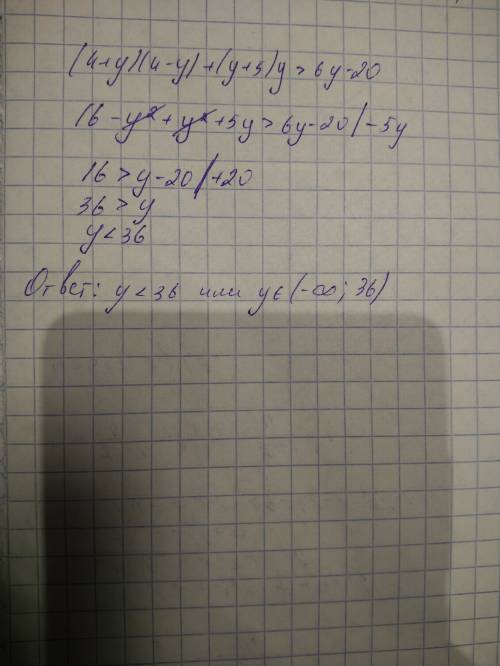 (4+y)(4-y)+(y+5)y>6y-20
16-y²+y²+5y>6y-20|-5y
16>y-20|+20
36>y
y<36
Ответ: y<36 или y∈(-∞; 36)